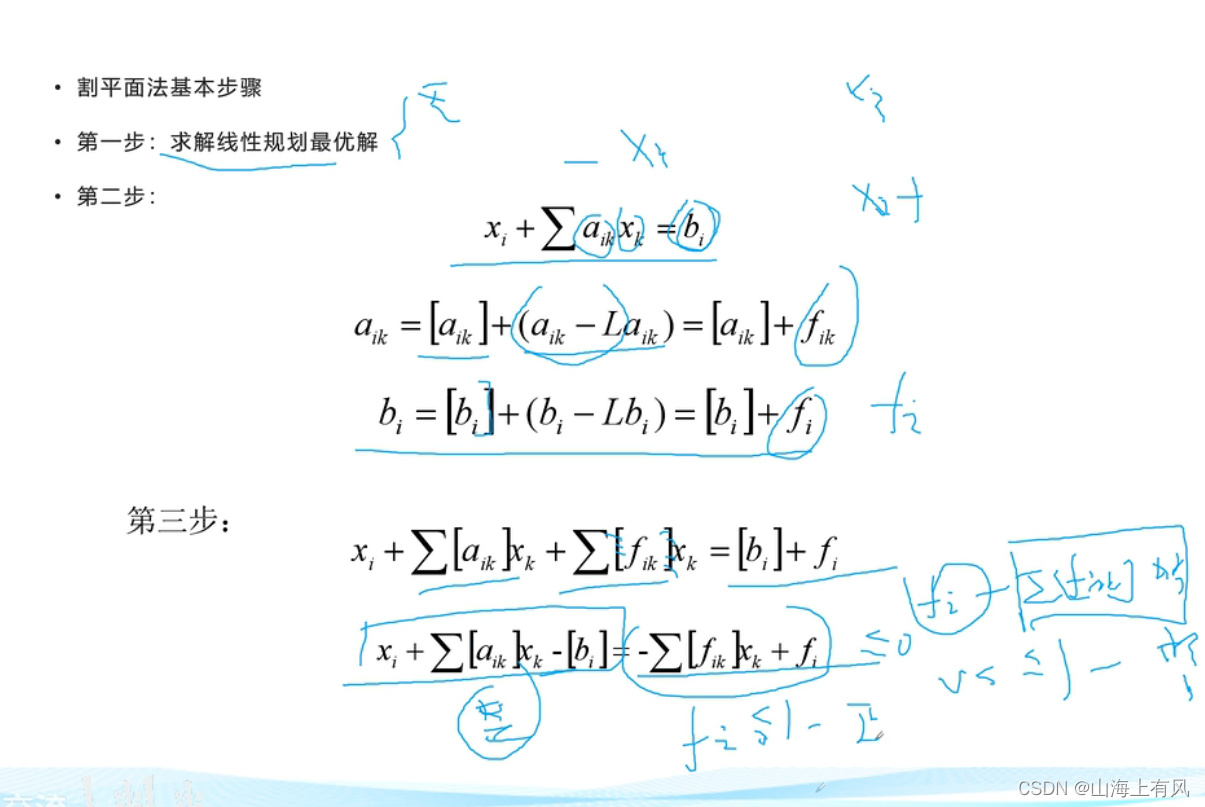 • 割平面法基本步骤
• 第一步：求解线性规划最优解
x₂
- x₄
• 第二步：
x₂+
xᵢ + ∑ aᵢₖ xₖ = bᵢ
aᵢₖ = [aᵢₖ] + (aᵢₖ − Laᵢₖ) = [aᵢₖ] + fᵢₖ
bᵢ = [bᵢ] + (bᵢ − Lbᵢ) = [bᵢ] + fᵢ
fᵢ
第三步：
xᵢ + ∑[aᵢₖ]xₖ + ∑[fᵢₖ]xₖ = [bᵢ] + fᵢ
fᵢ - ∑[fᵢₖ]
xᵢ + ∑[aᵢₖ]xₖ -[bᵢ]= -∑[fᵢₖ]xₖ + fᵢ ≤0
≤1 -
整
fᵢ ≤1 -
CSDN @山海上有风